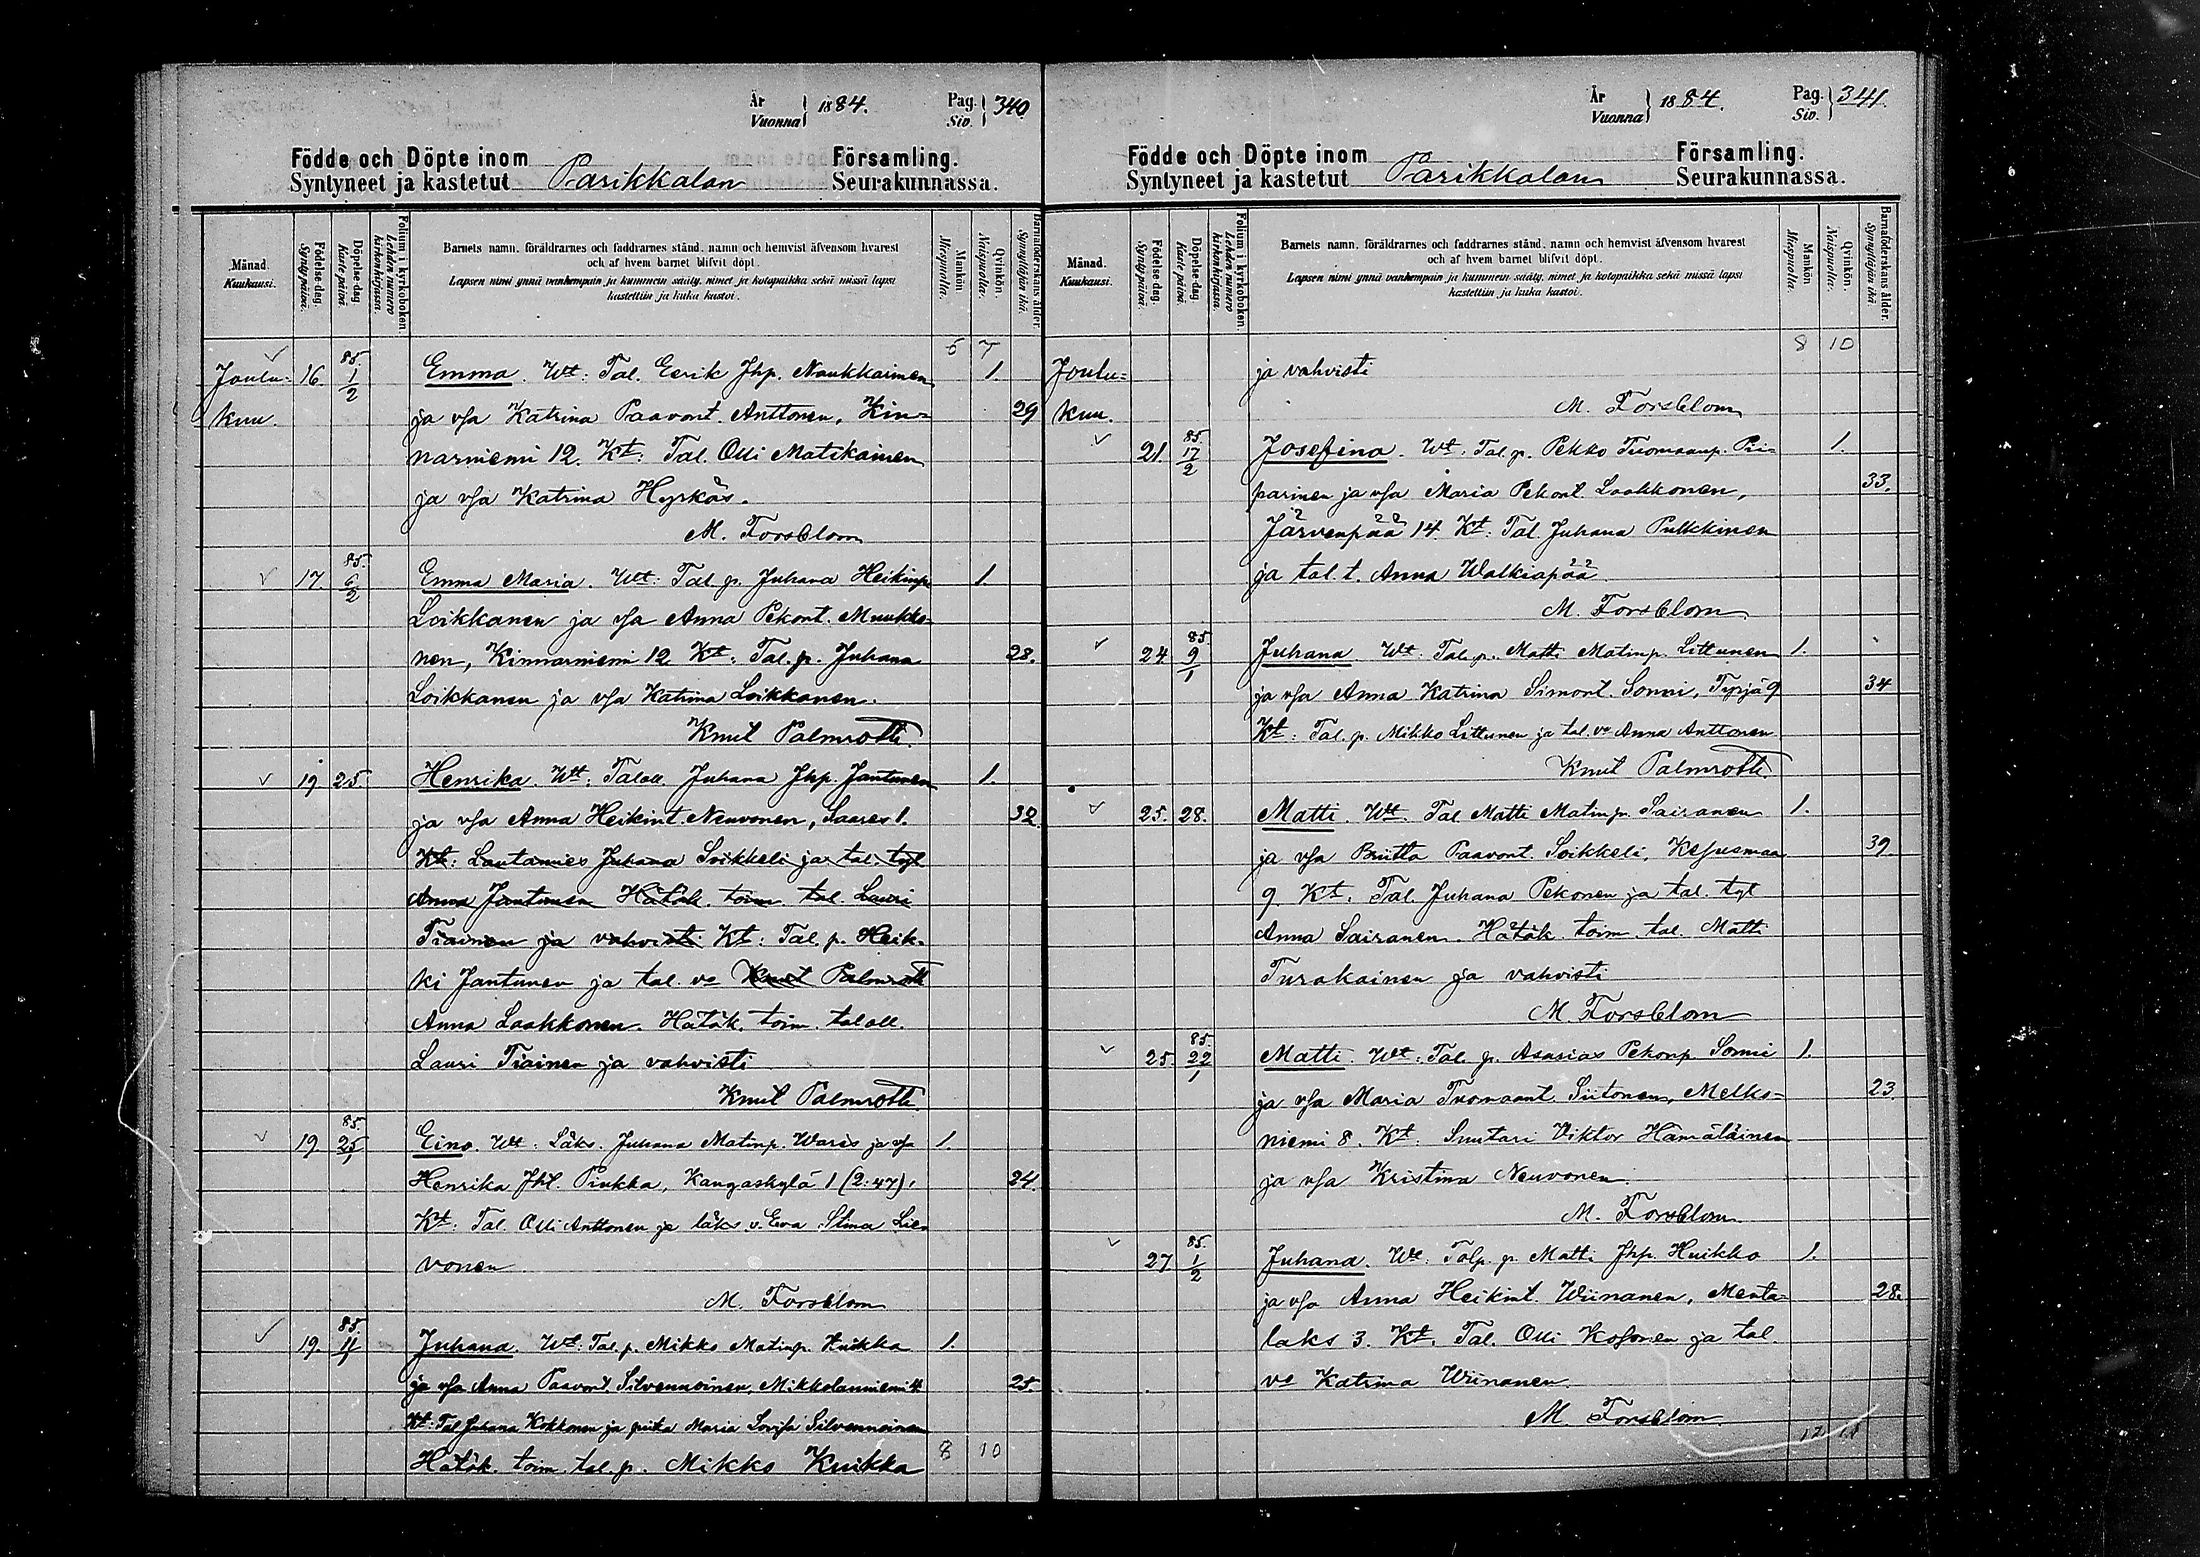 År
Vuonna } 1884. Pag.
Siv. } 340
Födde och Döpte inom Parikkalan Församling.
Syntyneet ja kastetut Seurakunnassa.
Månad.
Kuukausi.
Födelse-dag.
Syntypäivä.
Döpelse-dag.
Kastepäivä.
Folium i kyrkoboken.
Lehden numero kirkonkirjassa.
Barnets namn, föräldrarnes och faddrarnes stånd, namn och hemvist äfvensom hvarest
och af hvem barnet blifvit döpt.
Lapsen nimi ynnä vanhempain ja kummein sääty, nimet ja kotopaikka sekä missä lapsi
kastettiin ja kuka kastoi.
Mankön.
Miespuolia.
Qvinkön.
Naispuolia.
Barnaföderskans ålder.
Synnyttäjän ikä.
6 7
Joulu- 16. 85. 1/2 Emma. Wt: Tal. Eerik Jhp. Naukkarinen 1.
kuu. ja vsa Katrina Paavont. Anttonen, Kin= 29
narniemi 12. Kt: Tal. Olli Matikainen
ja vsa Katrina Hyrkäs.
M. Forsblom
17. 85. 6/2 Emma Maria. Wtt: Tal. p. Juhana Heikinp. 1.
Loikkanen ja vsa Anna Pekont. Muukko-
nen, Kinnarniemi 12 Kt: Tal. p. Juhana 28.
Loikkanen ja vsa Katrina Loikkanen.
Knut Palmroth.
19 25. Henrika. Wtt: Taloll. Juhana Jhp. Jantunen 1.
ja vsa Anna Heikint. Neuvonen, Saares 1. 32.
Kt: Lautamies Juhana Soikkeli ja tal. tyt.
Anna Jantunen Hätäk. toim. tal. Lauri
Tiainen ja vahvisti Kt: Tal. p. Heik-
ki Jantunen ja tal. vo Knut Palmroth
Anna Laakkonen. Hätäk. toim. taloll.
Lauri Tiainen ja vahvisti
Knut Palmroth.
19. 85. 25/1 Eino. Wt: Läks. Juhana Matinp. Wares ja vsa 1.
Henrika Jht. Piukka, Kangaskylä 1 (2:47). 24.
Kt: Tal. Olli Anttonen ja läks. v. Eva Stina Lie-
vonen
M. Forsblom
19. 85. 11/1 Juhana. Wt: Tal. p. Mikko Matinp. Kuikka 1.
ja vsa Anna Paavont. Silvennoinen, Mikkolanniemi 4 25.
Kt: Tal. Juhana Kokkonen ja Maria Lovisa Silvennoinen
Hätäk. toim. tal. p. Mikko Kuikka 8 10
År
Vuonna } 1884. Pag.
Siv. } 341.
Födde och Döpte inom Parikkalan Församling.
Syntyneet ja kastetut Seurakunnassa.
Månad.
Kuukausi.
Födelse-dag.
Syntypäivä.
Döpelse-dag.
Kastepäivä.
Folium i kyrkoboken.
Lehden numero kirkonkirjassa.
Barnets namn, föräldrarnes och faddrarnes stånd, namn och hemvist äfvensom hvarest
och af hvem barnet blifvit döpt.
Lapsen nimi ynnä vanhempain ja kummein sääty, nimet ja kotopaikka sekä missä lapsi
kastettiin ja kuka kastoi.
Mankön.
Miespuolia.
Qvinkön.
Naispuolia.
Barnaföderskans ålder.
Synnyttäjän ikä.
8 10
Joulu= ja vahvisti
kuu. M. Forsblom
21. 85. 17/2 Josefina. Wt: Tal. p. Pekko Tuomaanp. Pii- 1.
parinen ja vsa Maria Pekont. Laakkonen, 33.
Järvenpää 14 Kt: Tal. Juhana Pulkkinen
ja tal. t. Anna Walkiapää
M. Forsblom
24 85. 9/1 Juhana. Wt: Tal. p. Matti Matinp. Littunen 1.
ja vsa Anna Katrina Simont. Sonni, Tyrjä 9 34
Kt: Tal. p. Mikko Littunen ja tal. vo Anna Anttonen
Knut Palmroth.
25. 28. Matti. Wtt. Tal Matti Matinp. Sairanen 1.
ja vsa Briitta Paavont. Soikkeli, Kesusmaa 39.
9. Kt: Tal. Juhana Pekonen ja tal. tyt
Anna Sairanen. Hätäk. toim. tal. Matti
Turakainen ja vahvisti
M. Forsblom
25. 85. 22/1 Matti. Wt: Tal. p. Asarias Pekonp. Sonni 1.
ja vsa Maria Tuomaant. Siitonen, Melko= 23.
niemi 8. Kt: Suutari Viktor Hämäläinen
ja vsa Kristina Neuvonen.
M. Forsblom
27 85. 1/2 Juhana. Wt: Talp. p. Matti Jhp. Huikko 1.
ja vsa Anna Heikint. Wiinanen, Menta- 28.
laks 3. Kt: Tal. Olli Kosonen ja tal.
vo Katrina Wiinanen.
M. Forsblom.
12